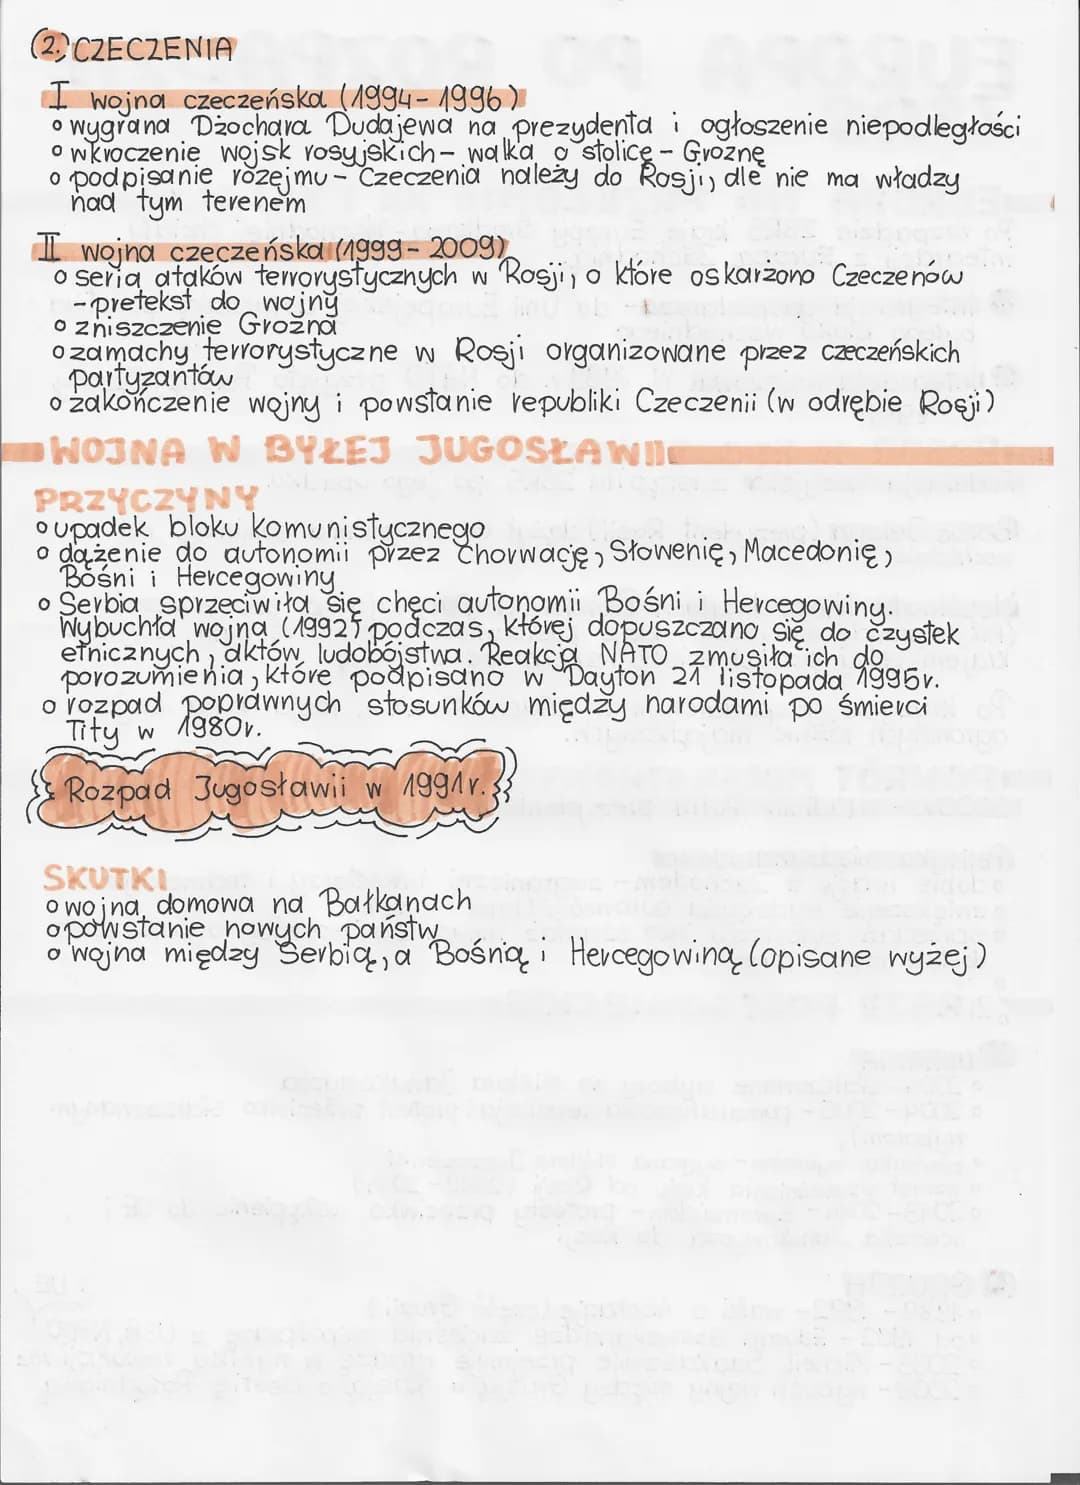 2. CZECZENIA
I wojna czeczeńska (1994-1996)
o wygrana Dżochara Dudajewa na prezydenta i ogłoszenie niepodległości
o wkroczenie wojsk rosyjskich - walka o stolicę - Groznę
o podpisanie rozejmu - Czeczenia należy do Rosji, ale nie ma władzy
nad tym terenem
II wojna czeczeńska (1999-2009)
o seria ataków terrorystycznych w Rosji, o które oskarżono Czeczenów
- pretekst do wojny
o zniszczenie Grozna
o zamachy terrorystyczne w Rosji organizowane przez czeczeńskich
partyzantów
o zakończenie wojny i powstanie republiki Czeczenii (w odrębie Rosji)
WOJNA W BYŁEJ JUGOSŁAWII
PRZYCZYNY
o upadek bloku komunistycznego
o dążenie do autonomii przez Chorwację, Słowenię, Macedonię,
Bośni i Hercegowiny
o Serbia sprzeciwiła się chęci autonomii Bośni i Hercegowiny.
Wybuchła wojna (1992) podczas, której dopuszczano się do czystek
etnicznych, aktów ludobójstwa. Reakcja NATO zmusiła ich do
porozumienia, które podpisano w Dayton 21 listopada 1995r.
o rozpad poprawnych stosunków między narodami po śmierci
Tity w 1980r.
Rozpad Jugosławii w 1991r.
SKUTKI
o wojna domowa na Bałkanach
o powstanie nowych państw
o wojna między Serbią, a Bośnią i Hercegowiną (opisane wyżej)